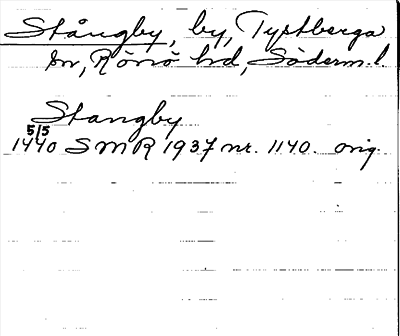 Stångby, by, Tystberga
sn, Rönö hd, Söderm.l.
Stangby
5/5
1440 SMR 1937 nr. 1140. orig.